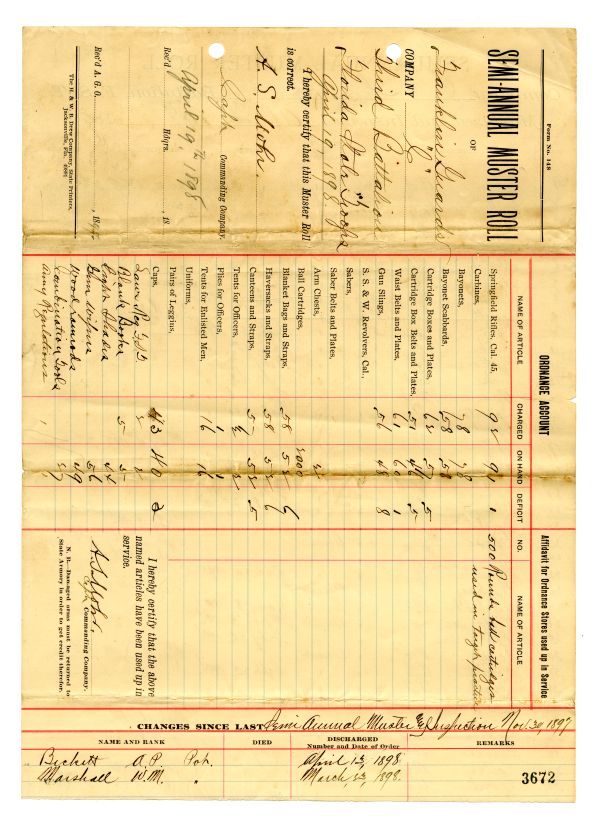 Form No. 148
SEMI-ANNUAL MUSTER ROLL
OF
Franklin Guards
COMPANY "C"
Third Battalion
Florida State Troops
April 19, 1898
I hereby certify that this Muster Roll
is correct.
A. S. Mohr
Capt Commanding Company.
April 19th 1898
Rec'd Hdqrs. 18
Rec'd A. G. O. , 189
The H. & W. B. Drew Company, State Printers,
Jacksonville, Fla.
ORDNANCE ACCOUNT
NAME OF ARTICLE CHARGED ON HAND DEFICIT
Springfield Rifles, Cal. 45,
Carbines,
Bayonets,
Bayonet Scabbards,
Cartridge Boxes and Plates,
Cartridge Box Belts and Plates,
Waist Belts and Plates, 61 60 1
Gun Slings, 56 48 8
S. & W. Revolvers, Cal.,
Sabers,
Saber Belts and Plates,
Arm Chests,
Ball Cartridges,
Blanket Bags and Straps, 58 52 6
Haversacks and Straps, 58 52 6
Canteens and Straps, 57 52 5
Tents for Officers, 2 2
Flies for Officers, 1 1
Tents for Enlisted Men, 16 16
Uniforms,
Pairs of Leggins,
Caps, 43 40 3
Blank Books
Gun Wipers
Wood ramrods
Combination Tools
Army Regulations
Affidavit for Ordnance Stores used up in Service
NO. NAME OF ARTICLE
500 Rounds ball cartridges
used in target practice
I hereby certify that the above
named articles have been used up in
service.
A. S. Mohr
Capt Commanding Company.
N. B.—Damaged arms must be returned to
State Armory in order to get credit therefor.
CHANGES SINCE LAST Semi Annual Muster & Inspection Nov. 30, 1897
NAME AND RANK DIED DISCHARGED REMARKS
Number and Date of Order
Beckett A. P. April 1st, 1898
Marshall W. M. " March, 1898.
3672